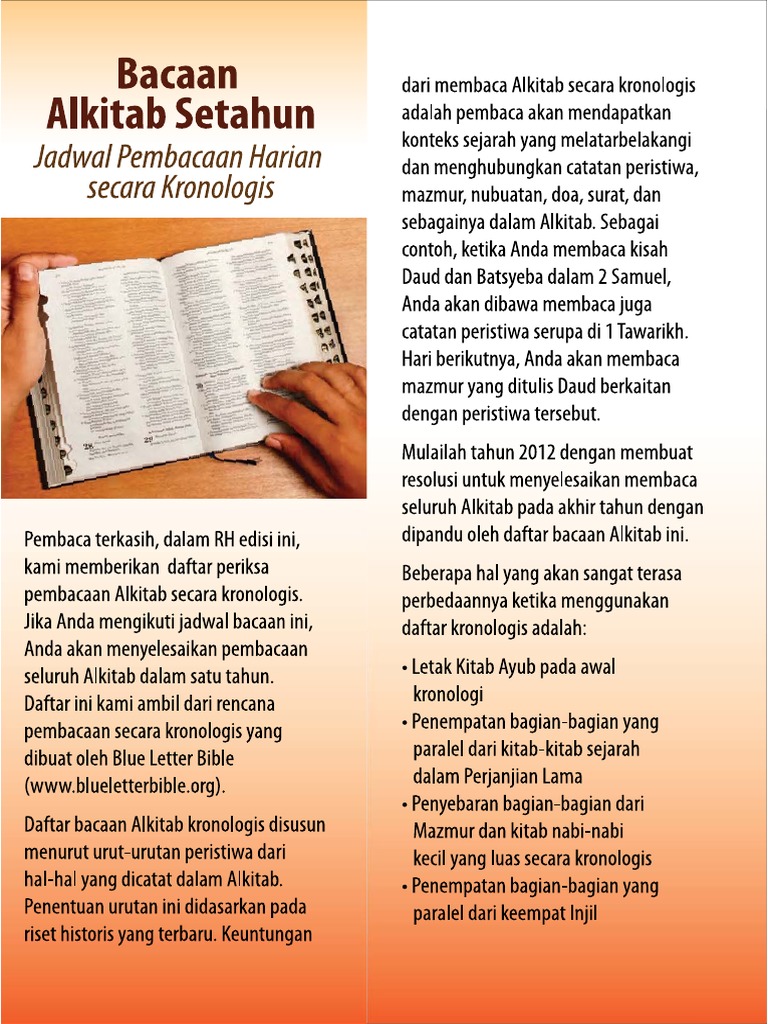 Bacaan
Alkitab Setahun
Jadwal Pembacaan Harian
secara Kronologis
Pembaca terkasih, dalam RH edisi ini,
kami memberikan daftar periksa
pembacaan Alkitab secara kronologis.
Jika Anda mengikuti jadwal bacaan ini,
Anda akan menyelesaikan pembacaan
seluruh Alkitab dalam satu tahun.
Daftar ini kami ambil dari rencana
pembacaan secara kronologis yang
dibuat oleh Blue Letter Bible
(www.blueletterbible.org).
Daftar bacaan Alkitab kronologis disusun
menurut urut-urutan peristiwa dari
hal-hal yang dicatat dalam Alkitab.
Penentuan urutan ini didasarkan pada
riset historis yang terbaru. Keuntungan
dari membaca Alkitab secara kronologis
adalah pembaca akan mendapatkan
konteks sejarah yang melatarbelakangi
dan menghubungkan catatan peristiwa,
mazmur, nubuatan, doa, surat, dan
sebagainya dalam Alkitab. Sebagai
contoh, ketika Anda membaca kisah
Daud dan Batsyeba dalam 2 Samuel,
Anda akan dibawa membaca juga
catatan peristiwa serupa di 1 Tawarikh.
Hari berikutnya, Anda akan membaca
mazmur yang ditulis Daud berkaitan
dengan peristiwa tersebut.
Mulailah tahun 2012 dengan membuat
resolusi untuk menyelesaikan membaca
seluruh Alkitab pada akhir tahun dengan
dipandu oleh daftar bacaan Alkitab ini.
Beberapa hal yang akan sangat terasa
perbedaannya ketika menggunakan
daftar kronologis adalah:
• Letak Kitab Ayub pada awal
kronologi
• Penempatan bagian-bagian yang
paralel dari kitab-kitab sejarah
dalam Perjanjian Lama
• Penyebaran bagian-bagian dari
Mazmur dan kitab nabi-nabi
kecil yang luas secara kronologis
• Penempatan bagian-bagian yang
paralel dari keempat Injil